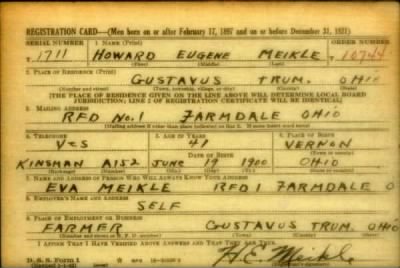 REGISTRATION CARD—(Men born on or after February 17, 1897 and on or before December 31, 1921)
SERIAL NUMBER 1. NAME (Print) ORDER NUMBER
1711 HOWARD EUGENE MEIKLE 10744
(First) (Middle) (Last)
2. PLACE OF RESIDENCE (Print)
GUSTAVUS TRUM. OHIO
(Number and street) (Town, township, village, or city) (County) (State)
[THE PLACE OF RESIDENCE GIVEN ON THE LINE ABOVE WILL DETERMINE LOCAL BOARD
JURISDICTION; LINE 2 OF REGISTRATION CERTIFICATE WILL BE IDENTICAL]
3. MAILING ADDRESS
RFD No.1 FARMDALE OHIO
[Mailing address if other than place indicated on line 2. If same insert word same]
4. TELEPHONE 5. AGE IN YEARS 6. PLACE OF BIRTH
YES 41 VERNON
DATE OF BIRTH
KINSMAN A152 JUNE 19 1900 OHIO
(Exchange) (Number) (Mo.) (Day) (Yr.) (State or country)
7. NAME AND ADDRESS OF PERSON WHO WILL ALWAYS KNOW YOUR ADDRESS
EVA MEIKLE RFD 1 FARMDALE O
8. EMPLOYER'S NAME AND ADDRESS
SELF
9. PLACE OF EMPLOYMENT OR BUSINESS
FARMER GUSTAVUS TRUM. OHIO
(Number and street or R. F. D. number) (Town) (County) (State)
I AFFIRM THAT I HAVE VERIFIED ABOVE ANSWERS AND THAT THEY ARE TRUE.
H.E. Meikle
D. S. S. Form 1